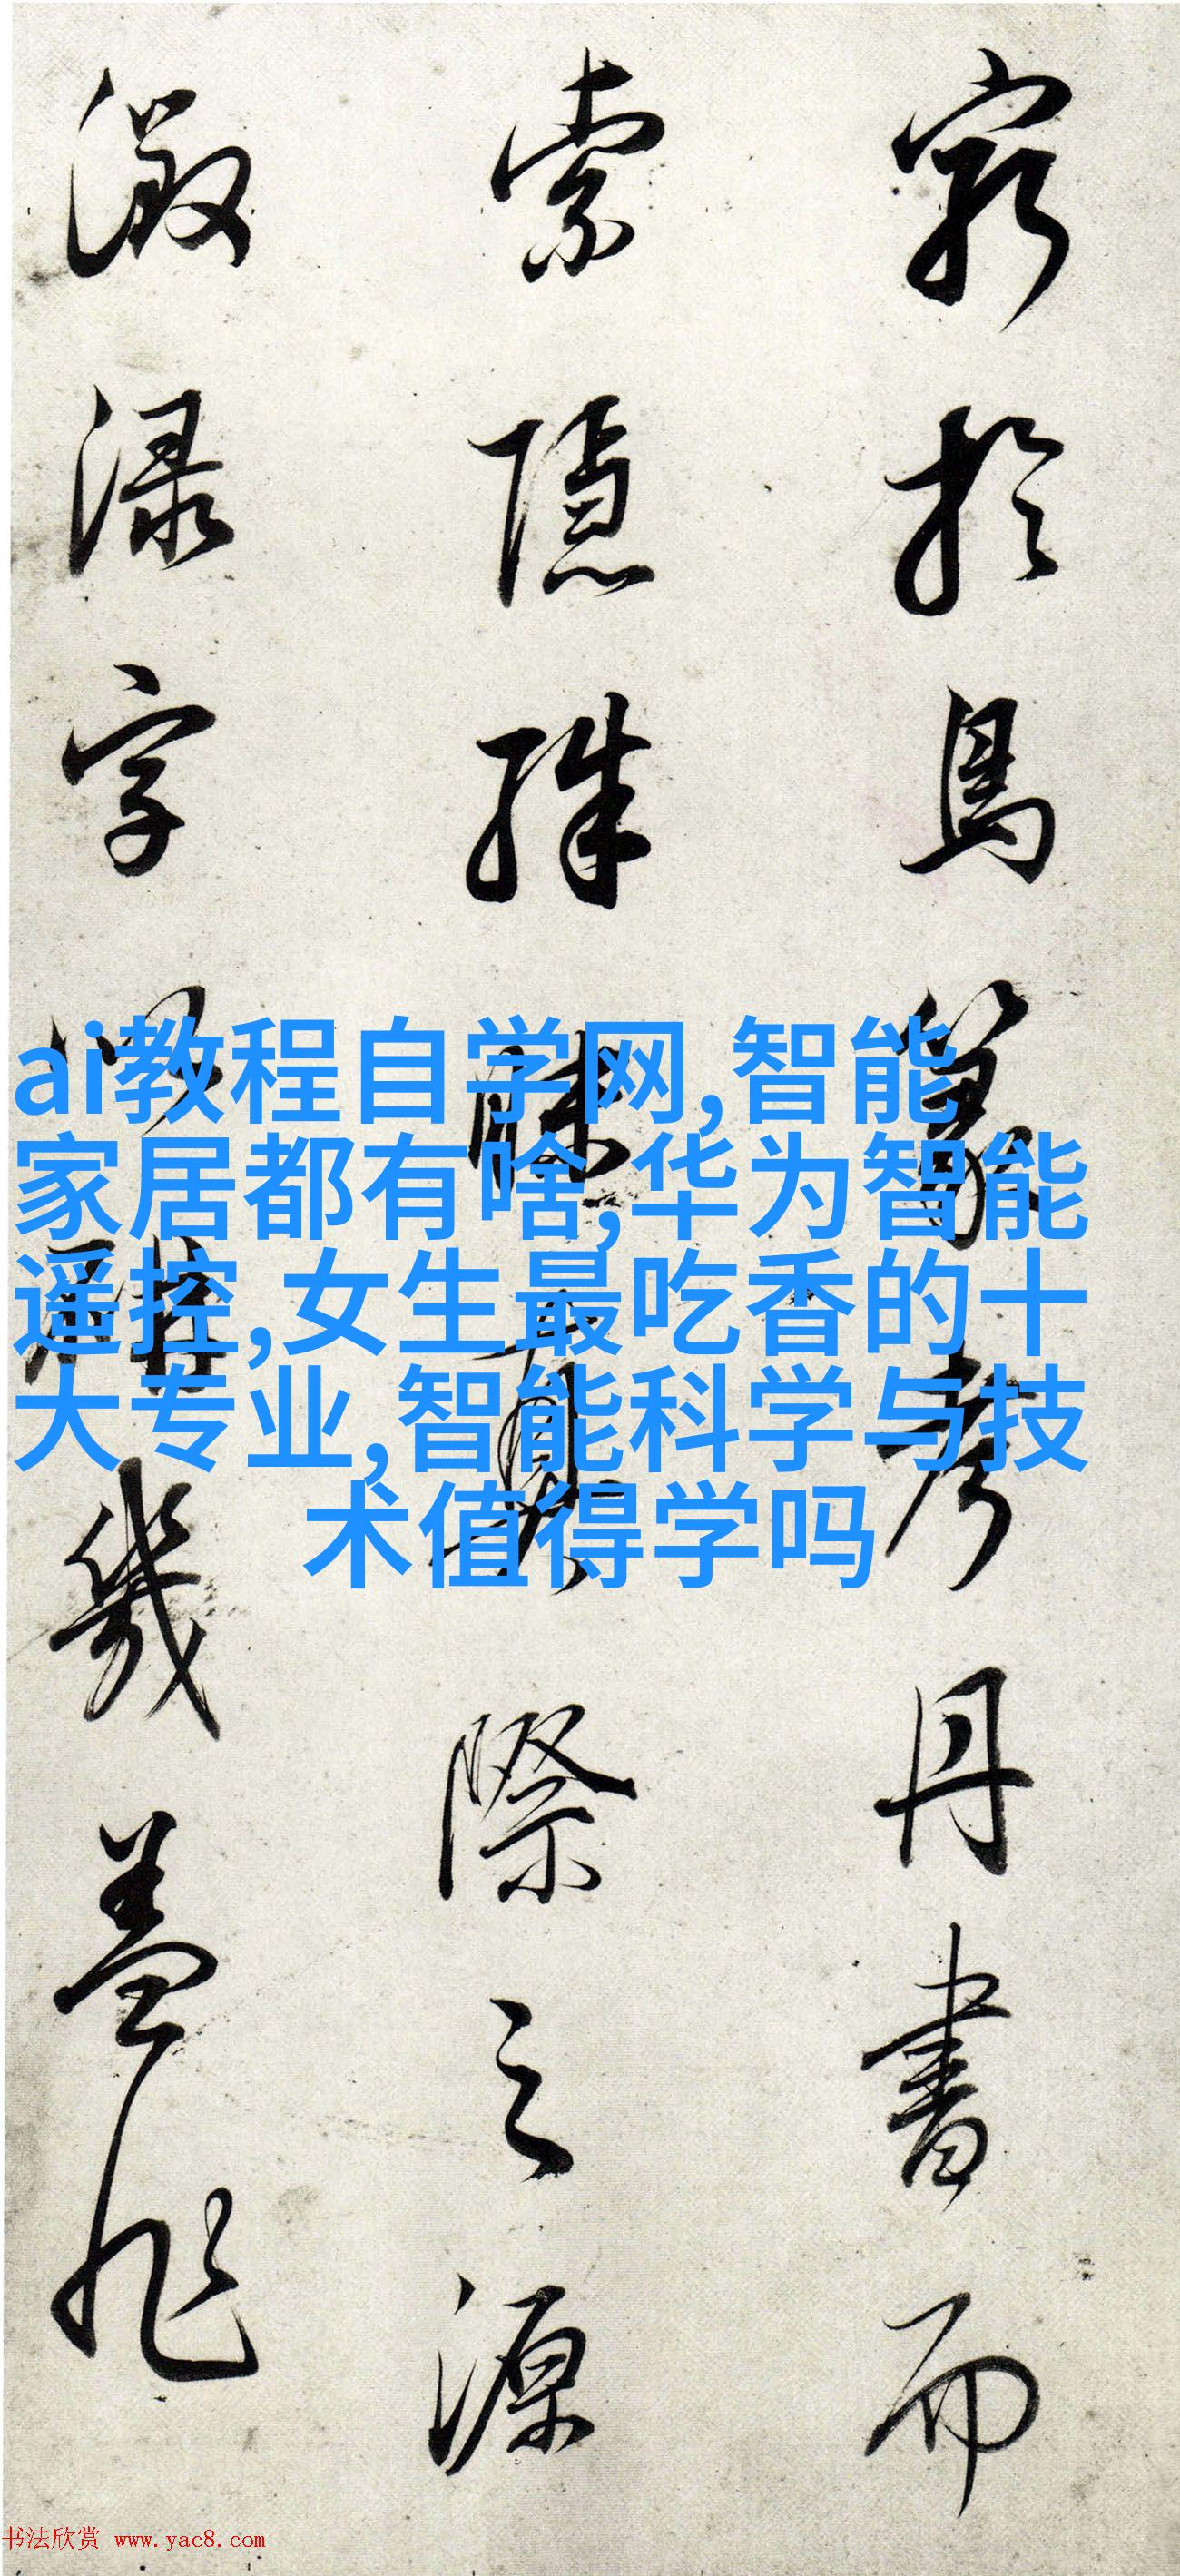 窮於鳥篆考丹書而
索隱殊昧真際之源
澂渌字
幾蓋非
ai教程自学网,智能
家居都有啥,华为智能
遥控,女生最吃香的十
大专业,智能科学与技
术值得学吗
书法欣赏 www.yac8.com